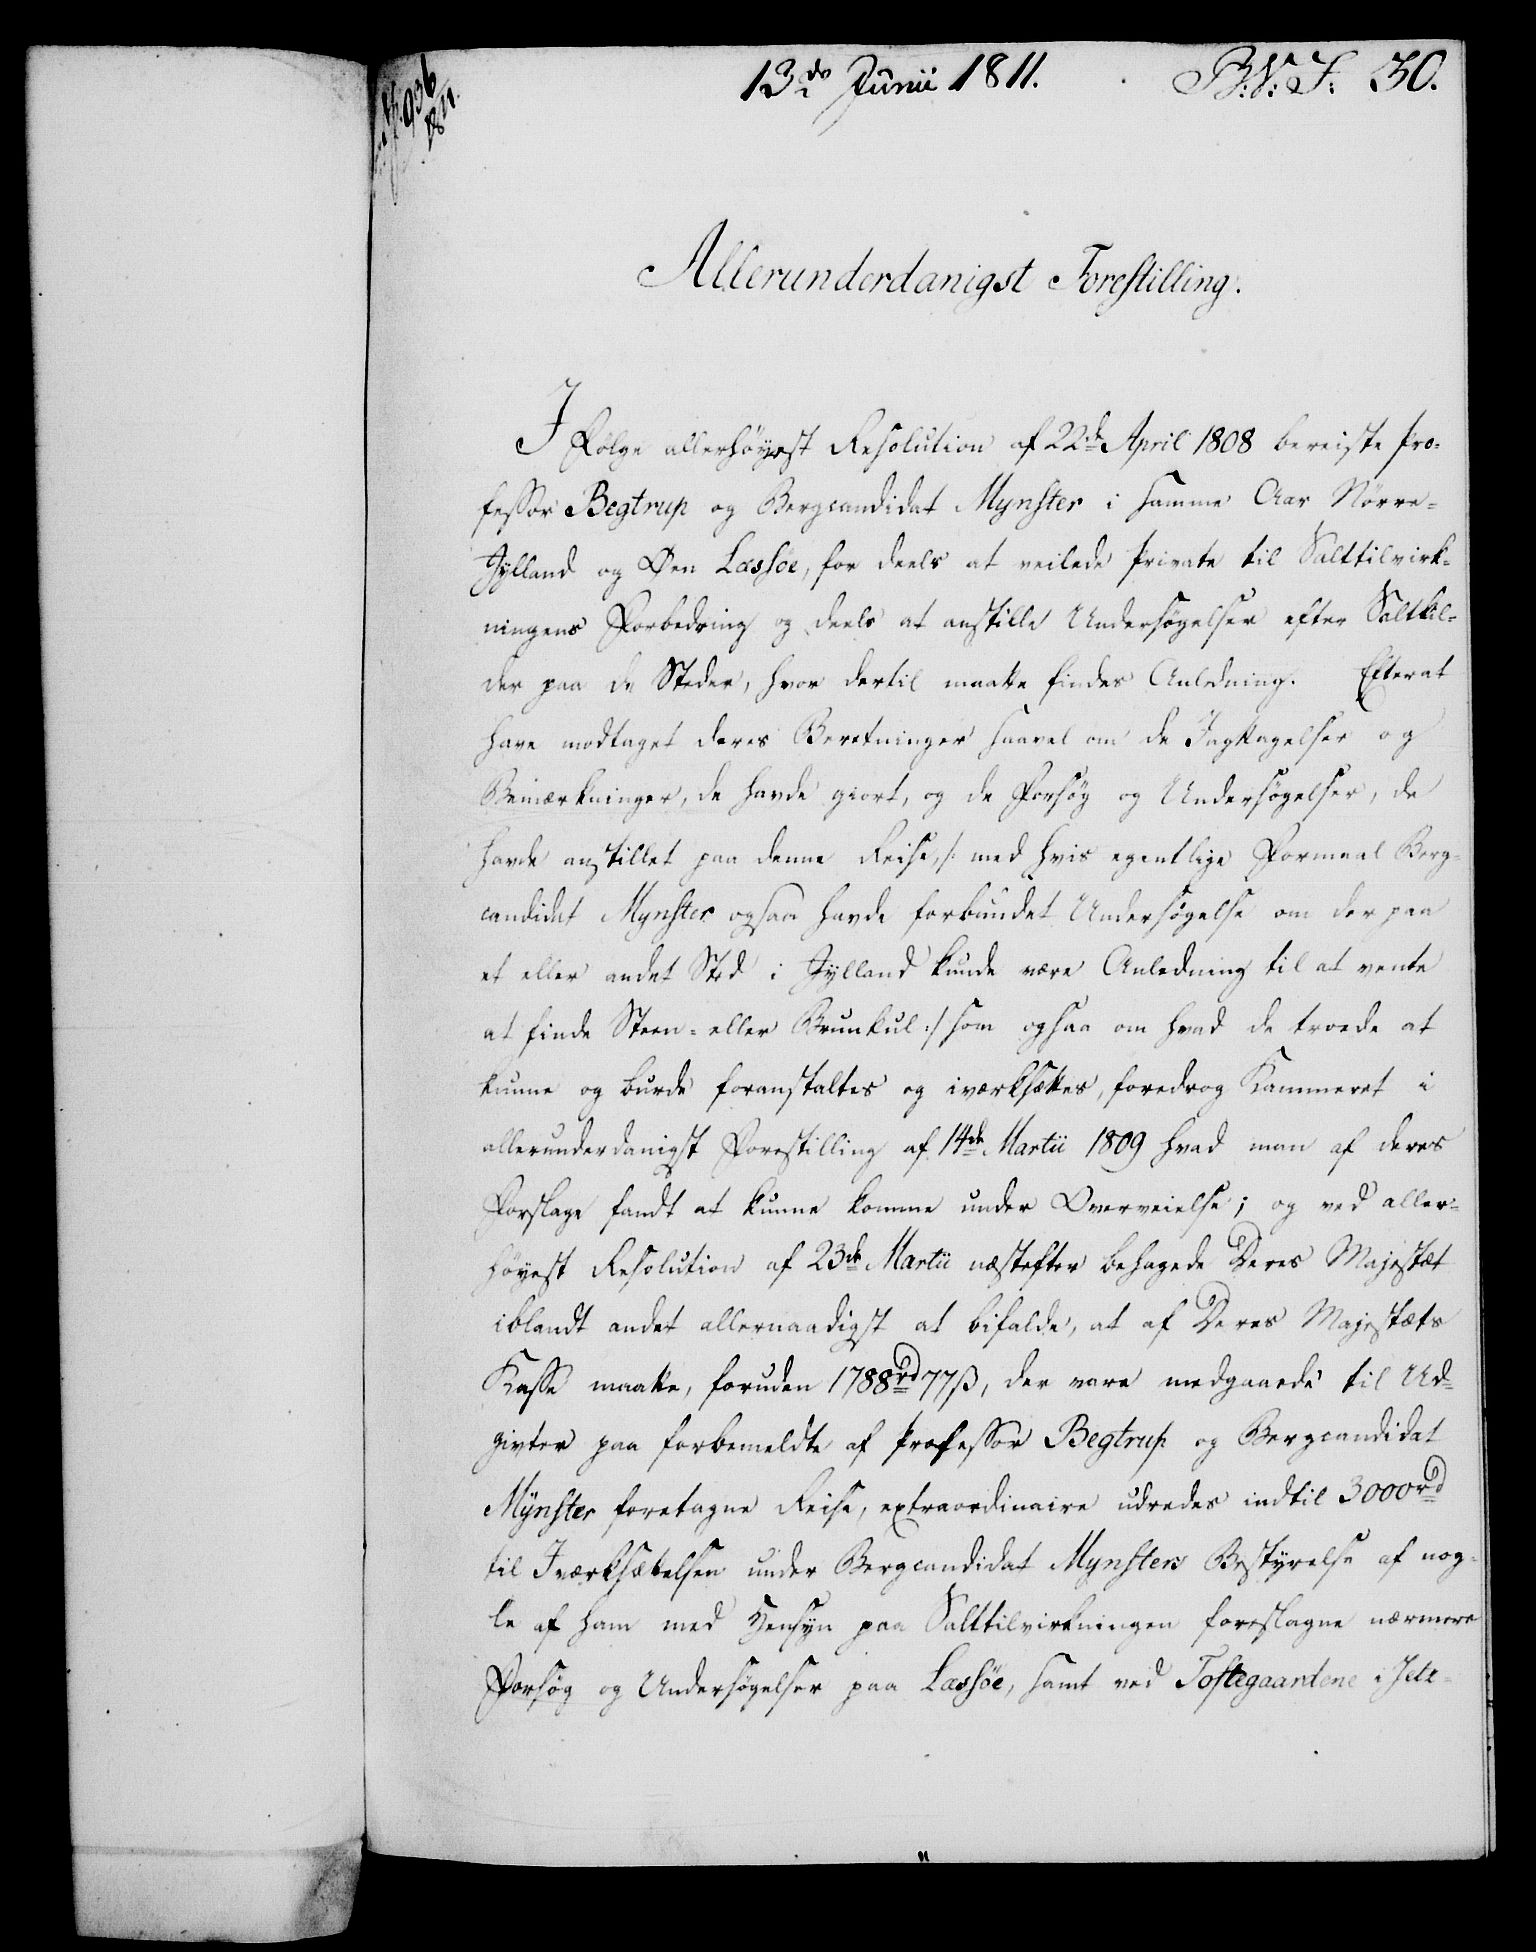 13de Junii 1811. B:V:S: 30.
936
1811.
Allerunderdanigst Forestilling.
I Følge allerhøyest Resolution af 22de April 1808 bereiste Pro-
fessor Begtrup og Bergcandidat Mynster i samme Aar Nørre-
Jylland og Øen Læssøe, for deels at veilede Private til Salttilvirk-
ningens Forbedring og deels at anstille Undersøgelser efter Saltkil-
der paa de Steder, hvor dertil maatte findes Anledning. Efterat
have modtaget deres Beretninger saavel om de Iagttagelser og
Bemærkninger, de havde giort, og de Forsøg og Undersøgelser, de
havde anstillet paa denne Reise, /: med hvis egentlige Formaal Berg-
candidat Mynster ogsaa havde forbundet Undersøgelse om der paa
et eller andet Sted i Jylland kunde være Anledning til at vente
at finde Steen- eller Bruunkul :/ som ogsaa om hvad de troede at
kunne og burde foranstaltes og iværksættes, foredrog Kammeret i
allerunderdanigst Forestilling af 14de Martii 1809 hvad man af deres
Forslage fandt at kunne komme under Overveielse; og ved aller-
høyest Resolution af 23de Martii næstefter behagede Deres Majestæt
iblandt andet allernaadigst at bifalde, at af Deres Majestæts
Kasse maatte, foruden 1788rd 77ß, der vare medgaaede til Ud-
givter paa forbemeldte af Professor Begtrup og Bergcandidat
Mynster foretagne Reise, extraordinaire udredes indtil 3000rd
til Iværksættelsen under Bergcandidat Mynsters Bestyrelse af nog-
le af ham med Hensyn paa Salttilvirkningen foreslagne nærmere
Forsøg og Undersøgelser paa Læssøe, samt ved Toftegaardene i Jets-